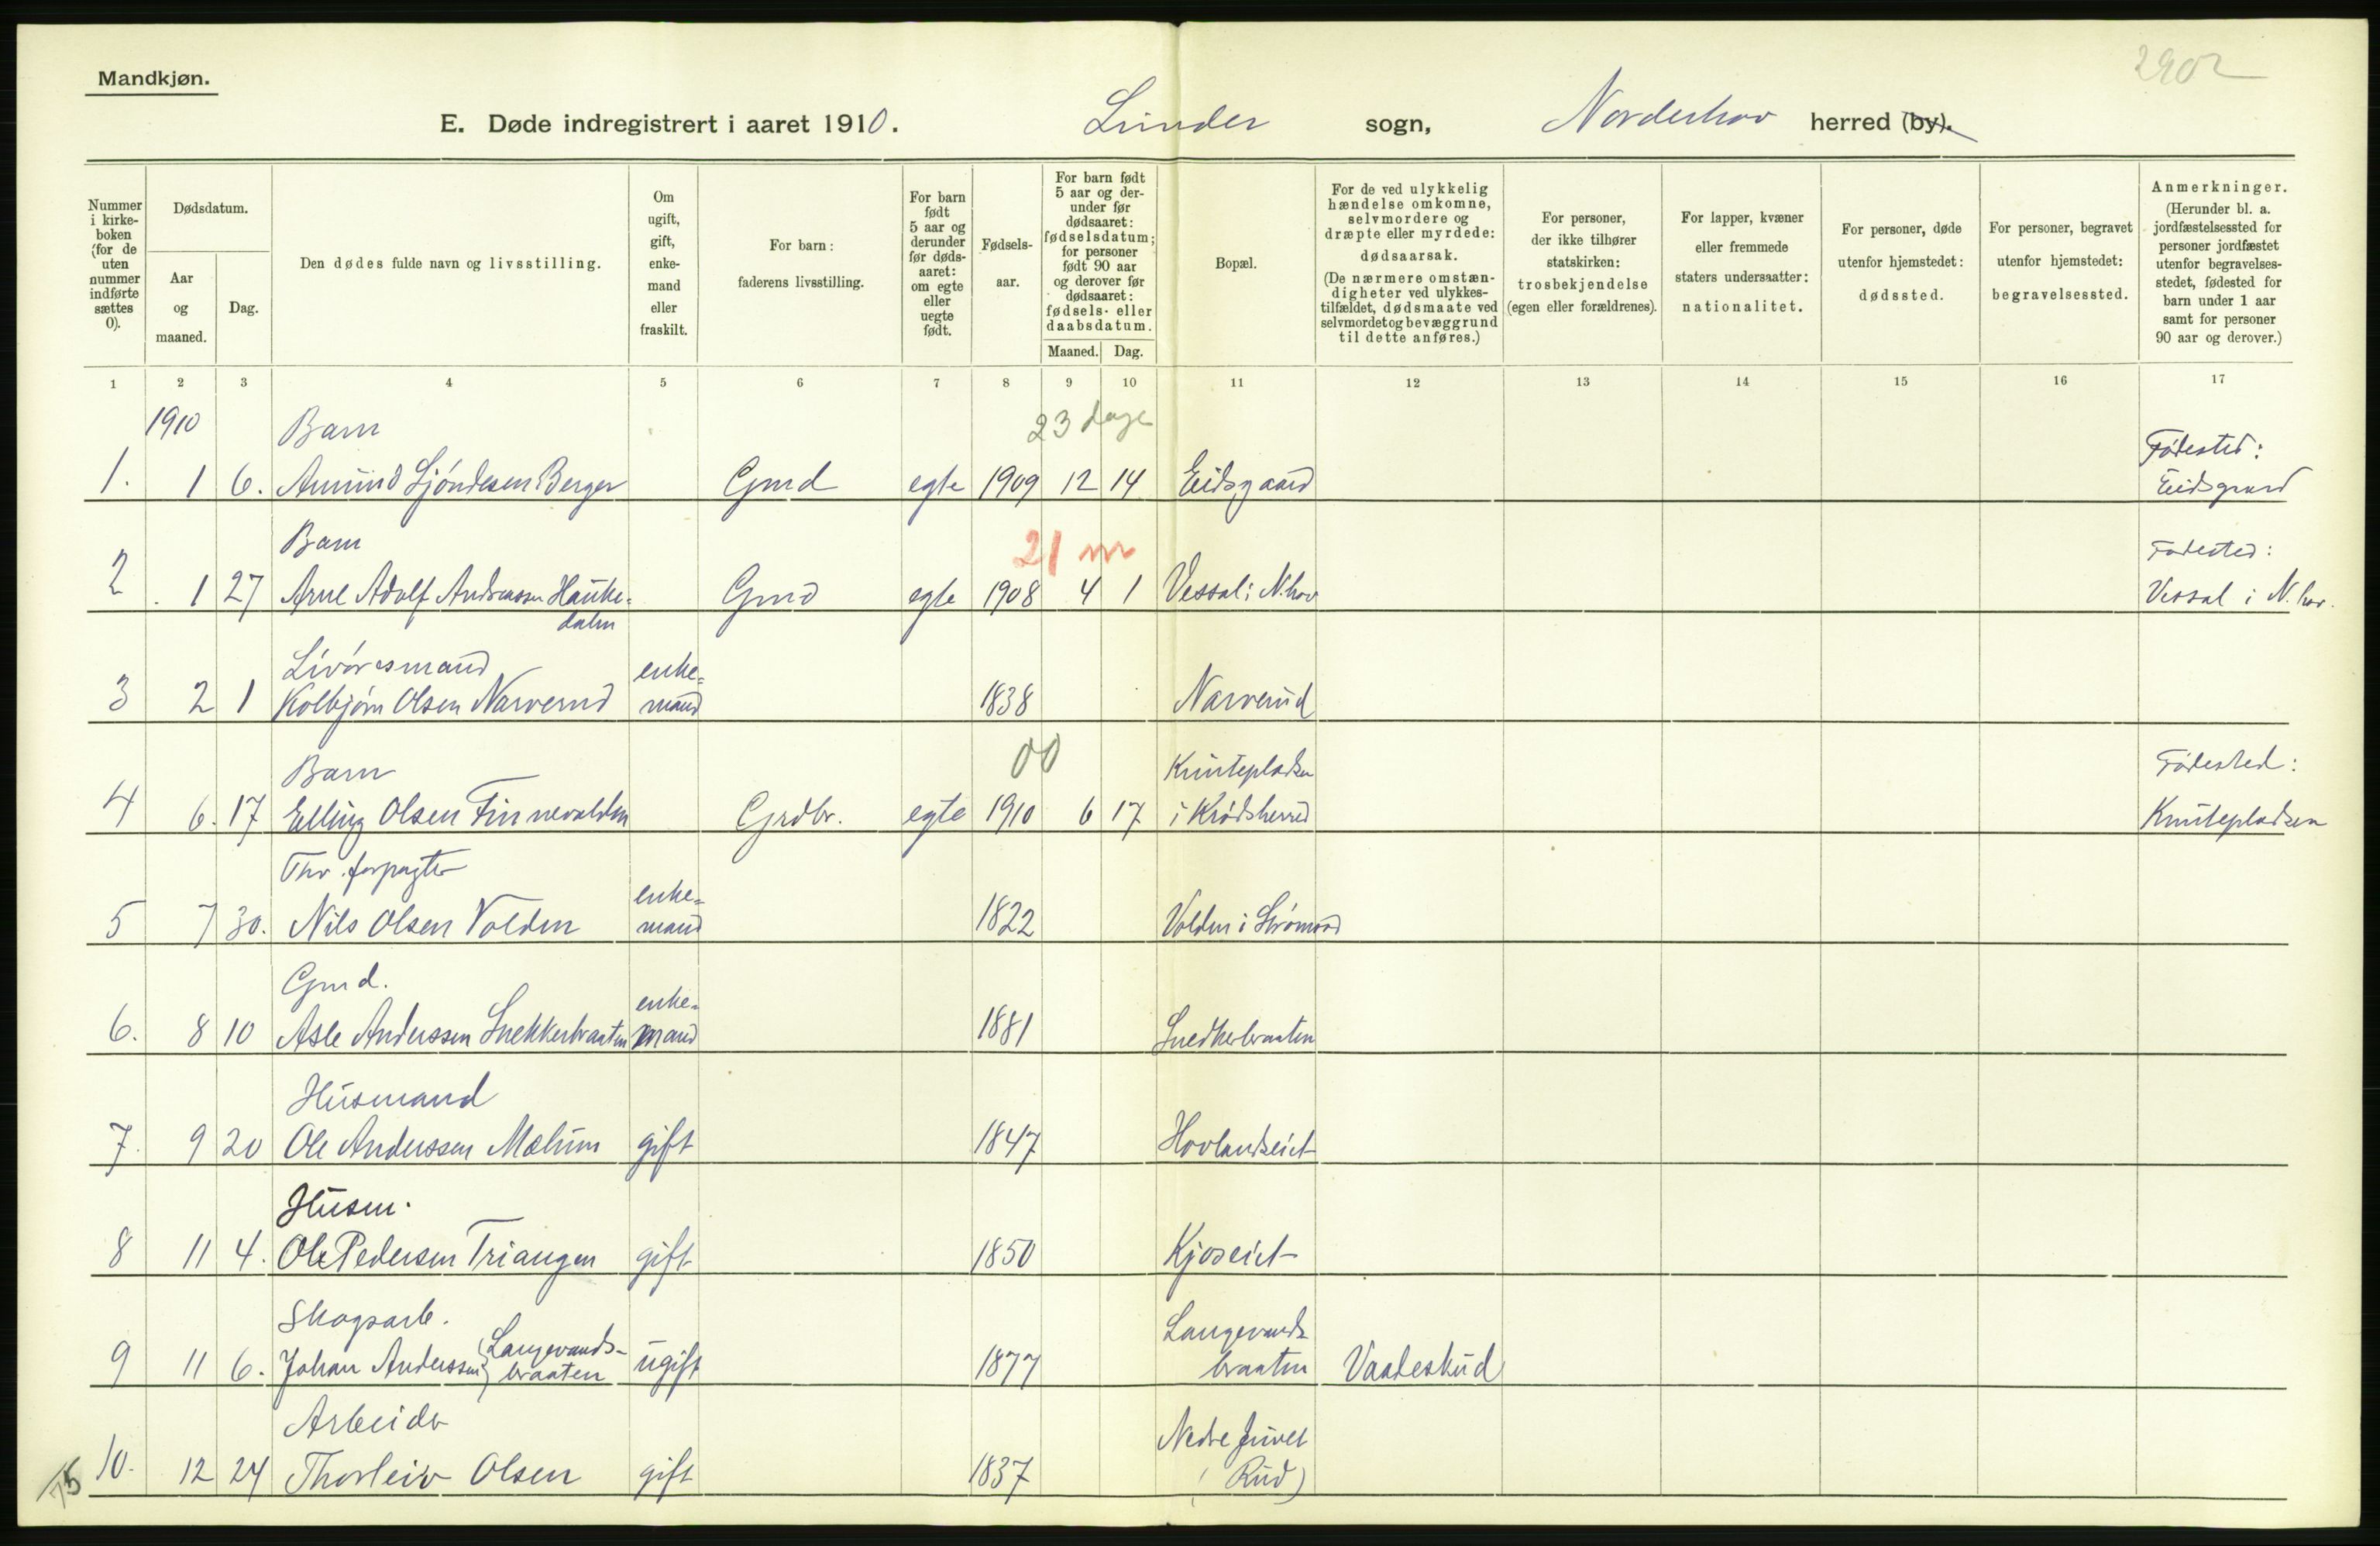 2902
Mandkjøn.
E. Døde indregistrert i aaret 1910. Lunder sogn, Norderhov herred (by).
Nummer i kirkeboken (for de uten nummer indførte sættes 0).
Dødsdatum.
Aar og maaned.
Dag.
Den dødes fulde navn og livsstilling.
Om ugift, gift, enkemand eller fraskilt.
For barn: faderens livsstilling.
For barn født 5 aar og derunder før dødsaaret: om egte eller uegte født.
Fødselsaar.
For barn født 5 aar og derunder før dødsaaret: fødselsdatum; for personer født 90 aar og derover før dødsaaret: fødsels- eller daabsdatum.
Maaned. Dag.
Bopæl.
For de ved ulykkelig hændelse omkomne, selvmordere og dræpte eller myrdede: dødsaarsak. (De nærmere omstændigheter ved ulykkestilfældet, dødsmaate ved selvmordet og bevæggrund til dette anføres.)
For personer, der ikke tilhører statskirken: trosbekjendelse (egen eller forældrenes).
For lapper, kvæner eller fremmede staters undersaatter: nationalitet.
For personer, døde utenfor hjemstedet: dødssted.
For personer, begravet utenfor hjemstedet: begravelsessted.
Anmerkninger. (Herunder bl. a. jordfæstelsessted for personer jordfæstet utenfor begravelsesstedet, fødested for barn under 1 aar samt for personer 90 aar og derover.)
1 2 3 4 5 6 7 8 9 10 11 12 13 14 15 16 17
1910 Barn 23 dage Fødested:
1. 1 6. Amund Sjøndesen Berger Gmd egte 1909 12 14 Eidsgaard Eidsgaard
Barn 21 m Fødested:
2 1 27 Arne Adolf Andreassen Hauke= Gmd egte 1908 4 1 Vessal i N.hov Vessal i N. hov.
dalen
Livøresmand enke=
3 2 1 Kolbjørn Olsen Narverud mand 1838 Narverud
Barn 00 Knutepladsen Fødested:
4 6. 17 Elling Olsen Finnevolden Grdbr. egte 1910 6 17 i Krødsherred Knutepladsen
Fhv. forpagter enke=
5 7 30. Nils Olsen Volden mand 1822 Volden i Strømsod
Gmd. enke=
6. 8 10 Asle Anderssen Snekkerbraaten mand 1881 Snedkerbraaten
Husmand
7. 9 20 Ole Anderssen Mælum gift 1847 Hovlandseiet
Husm.
8 11 4. Ole Pedersen Triangen gift 1850 Kjoseiet
Skogsarb. Langevands- Langevands
9 11 6. Johan Anderssen braaten ugift 1877 braaten Vaadeskud
Arbeider Nedre Juvet
10. 12 24 Thorleiv Olsen gift 1837 (Rud)
75